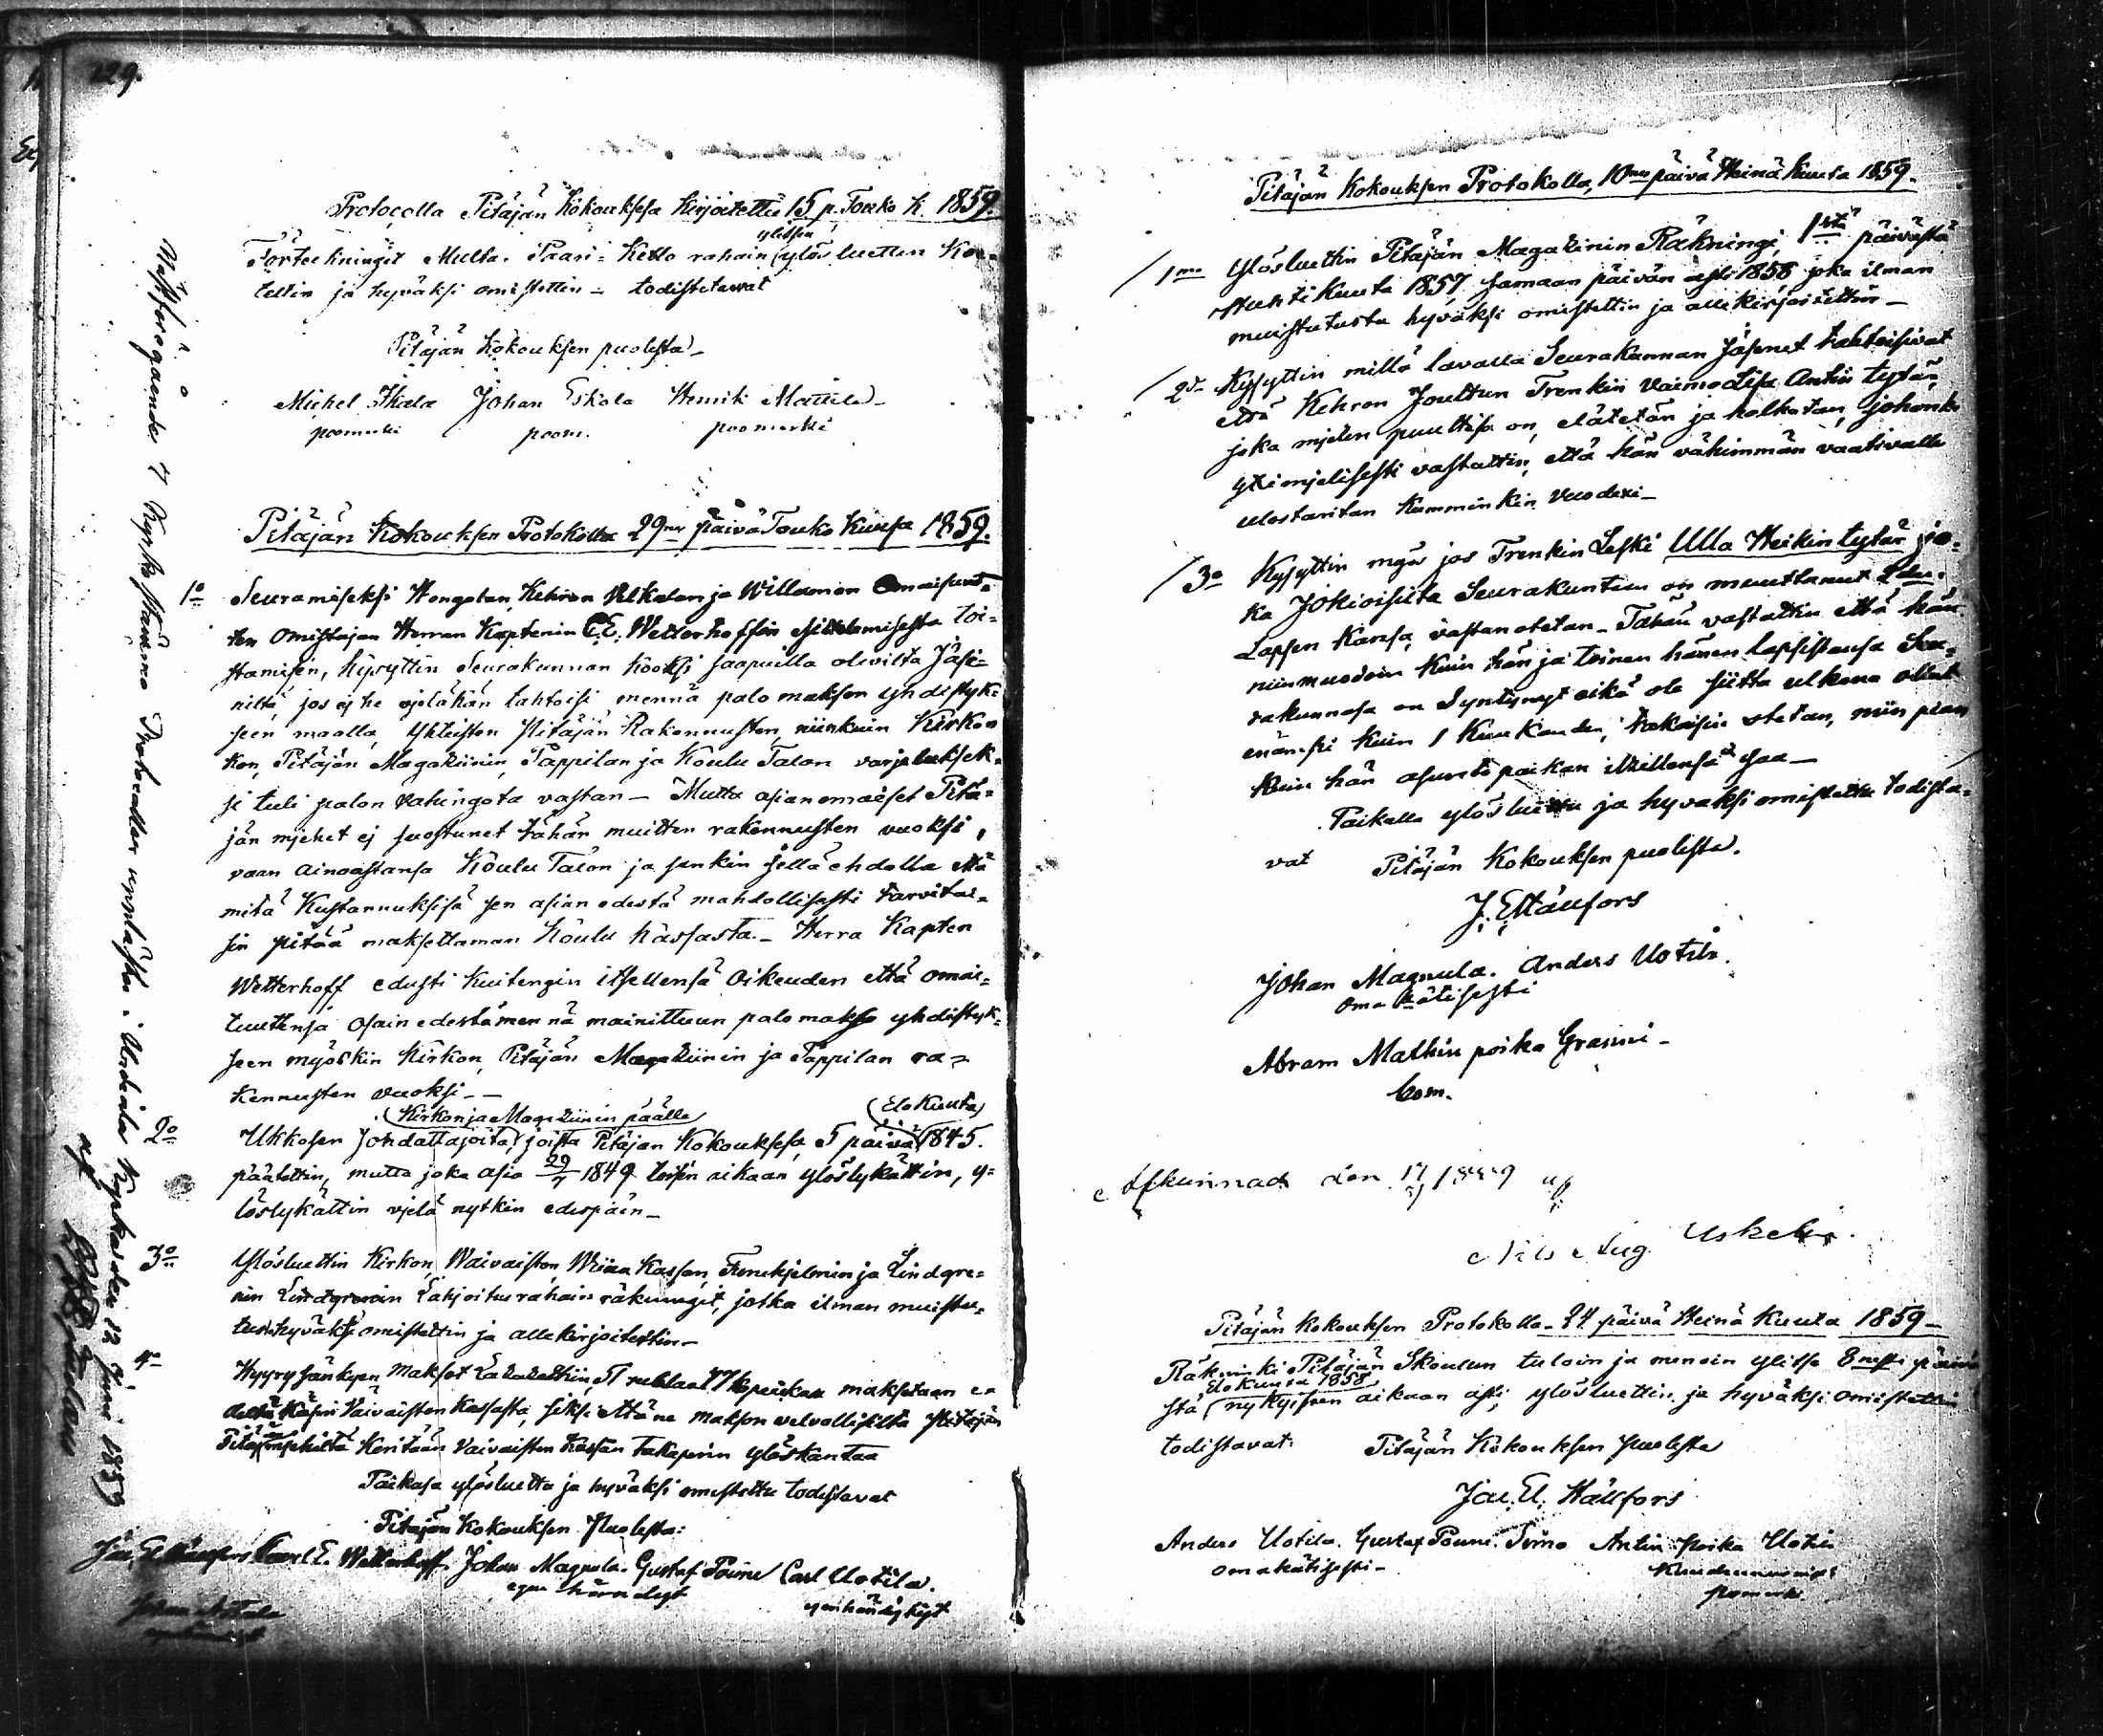 229.
Protocolla Pitäjän Kokouksesa Kirjoitettu 15 p. Touko k. 1859.
Förteckningit Multa- Paari- Kello rahain ylitsen ylösluettin Koe-
teltin ja hyväksi omistettin – todistetawat
Pitäjän Kokouksen puolesta –
Michel Skala Johan Eskola Henrik Mattila –
poomerki poom. poomerki
Pitäjän Kokouksen Protokolla 29ns päivä Touko Kuusa 1859.
1o Seuramiseksi Hongolan, Kehron Velkalan ja Willamon Omaisuut-
ten omistajan Herran Kaptenin C. E. Wetterhoffin esittelemisestä toi-
stamisen, kysyttin Seurakunnan kooksi saapuilla olevilta Jäse-
niltä, jos ej he vjelähän tahtoisi mennä palo makson yhdistyk-
seen maalla, yhteisten Pitäjän Rakennusten, niinkuin Kirkon
kon, Pitäjän Magaziinin, Pappilan ja Koulu Talon varjeluksek-
si tuli palon vahingota vastan – Mutta asianomaiset Pitä-
jän mjehet ej suostunet tähän muitten rakennusten vuoksi,
vaan ainoastansa Koulu Talon ja senkin sillä ehdolla että
mitä Kustannuksisa sen asian edestä mahdollisesti tarvitai-
sin pitää maksettaman Koulu kassasta. – Herra Kapten
Wetterhoff edusti Kuitengin itsellensä oikeuden että omai-
suutensa osain edestä mennä mainittuun palo makso yhdistyk-
seen myöskin Kirkon, Pitäjän Magaziinin ja Pappilan ra-
kennusten vuoksi. –
(Kirkon ja Magaziinin päälle (Elokuuta)
2o Ukkosen Johdattajoita, joista Pitäjän Kokouksesa, 5 päivä 1845.
päätettin, mutta joka asia 29/7 1849 toisen aikaan ylöslykättin, y-
löslykättin vjelä nytkin edespäin –
3o Ylösluettin Kirkon, Waivaisten, Wiina Kassan, Fonehjelmin ja Lindgre-
nin Lindgrenin Lahjoitus rahain räkningit, jotka ilman muistu-
tusta hyväksi omistettin ja allekirjoitettin –
4o Hyyry Sänkyen maksot Lasarettiin, 51 rublaa 17 kopeikaa maksetaan e-
deltä käsin Vaivaisten Kassasta, siksi että ne makson velvollisilta Pitäjän
Pitäjän mjehiltä Keritään Vaivaisten Kassan takaperin ylöskantaa
Paikasa ylösluettu ja hyväksi omistettu todistavat
Pitäjän Kokouksen Puolesta:
Carl E. Wetterhoff. Johan Magnula. Gustaf Poune Carl Uotila.
egen händigt egenhändigt
Nästföregående 4 Kyrkostämmo Protocoller uppläsne i Urdiala Kyrka den 12 Juni 1859
Pitäjän Kokouksen Protokolla, 10nes päivä Heinä Kuuta 1859.
1mo Ylösluettin Pitäjän Magazinin Räkningi, 1stä päivästä
Huhti Kuuta 1857, samaan päivän asti 1858 joka ilman
muistutusta hyväksi omistettin ja allekirjoitettin –
2do Kysyttin millä lavalla Seurakunnan Jäsenet tahtoisivat
että Kehron Joultun Trenkin vaimo Lisa Antin tytär,
joka mjelen puuttesa on, elätetän ja holhotan, johonka
yximjelisesti vastattin, että hän vähimmän vaativalle
ulostaritan Kumminkin vuodexi –
3o Kysyttin myös jos Trenkin Leski Ulla Heikintytär jo-
ka Jokioisista Seurakuntaan on muuttanut 2den
Lapsen Kansa, vastan otetan – Tähän vastattin että hän
niinmuodoin kuin hän ja toinen hänen lapsistansa Seu-
rakunnasa on Syntynyt eikä ole siitta ulkona ollut
enämbi kuin 1 Kuu Kauden, takaisin otetan, niin pian
kuin hän asunto paikan itsellensä saa –
Paikalla ylösluettu ja hyväksi omistettu todista-
vat Pitäjän Kokouksen puolesta.
J. E. Hällfors
Johan Magnula. Anders Uotila.
Oma kätisesti
Abram Mathin poika Granni –
bom.
Afkunnadt den 17/7 1859 af
Nils Aug. Uskeli.
Pitäjän Kokouksen Protokolla – 24 päivä Heinä Kuuta 1859 –
Räkninki Pitäjän Skoulun tuloin ja menoin ylitse 8nesti päivä
Elokuuta 1858
stä (nykyisen aikaan asti, ylösluettin ja hyväksi omistettin
todistavat. Pitäjän Kokouksen Puolesta
Jac. E. Hällfors
Anders Uotila. Gustaf Poune. Simo Antin Poika Uotila
omakätisesti –
Pomerki.